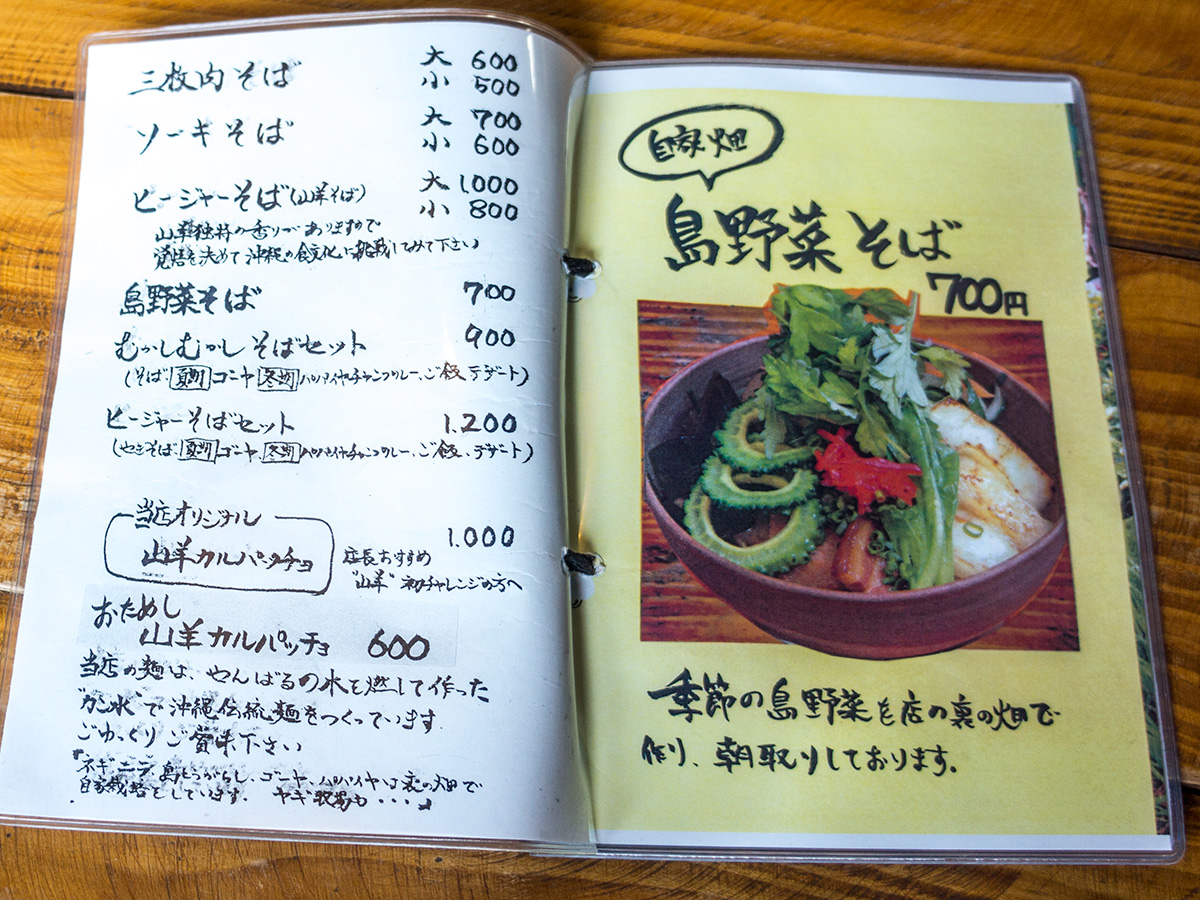 三枚肉そば 大 600
小 500
ソーキそば 大 700
小 600
ヒージャーそば(山羊そば) 大 1000
小 800
山羊独特の香りがありますので
覚悟を決めて沖縄の食文化に挑戦してみて下さい♪
島野菜そば 700
むかしむかしそばセット 900
(そば、夏期 ゴーヤ 冬期 パパイヤチャンプルー、ご飯、デザート)
ヒージャーそばセット 1.200
(やぎそば、夏期 ゴーヤ、冬期 パパイヤチャンプルー、ご飯、デザート)
当店オリジナル
山羊カルパッチョ 1.000
店長おすすめ
"山羊"初チャレンジの方へ
おためし
山羊カルパッチョ 600
当店の麺は、やんばるの木を燃して作った
"カン水"で沖縄伝統麺をつくっています
ごゆっくりご賞味下さい
ネギ、ニラ、島とうがらし、ゴーヤ、パパイヤは裏の畑で
自家栽培をしています。 ヤギ牧場も・・・・
自家畑
島野菜そば
700円
季節の島野菜を店の裏の畑で
作り、朝取りしております。